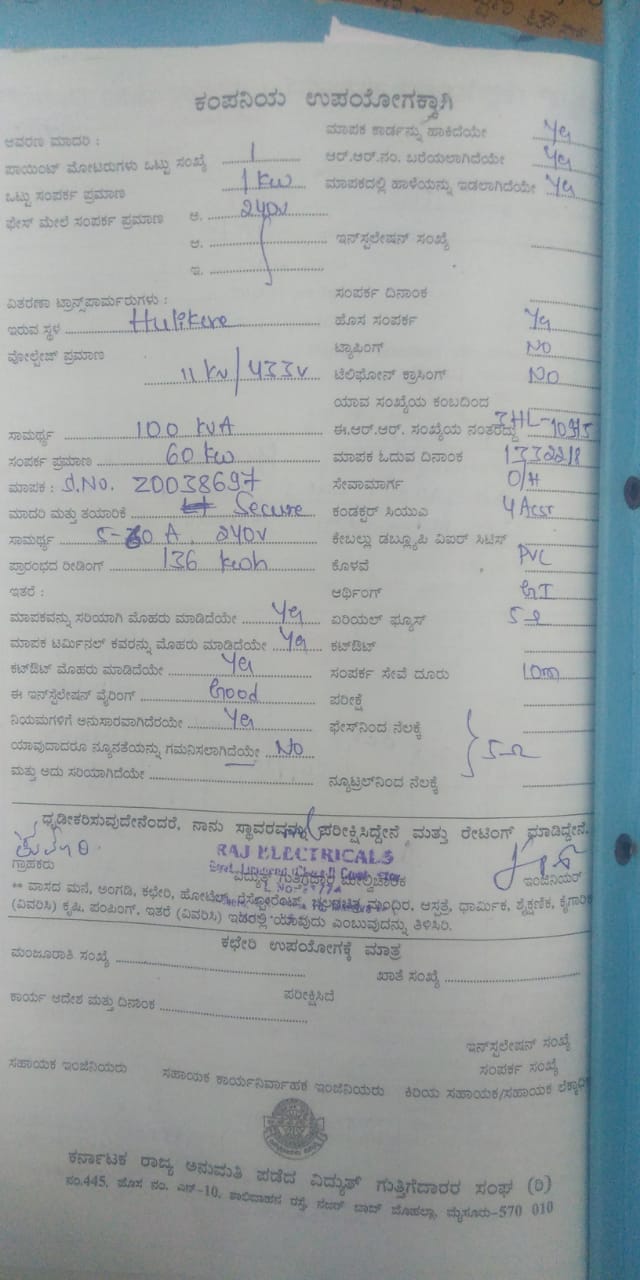 ಕಂಪನಿಯ ಉಪಯೋಗಕ್ಕಾಗಿ
ಆವರಣ ಮಾದರಿ :
ಪಾಯಿಂಟ್ ಮೋಟರುಗಳು ಒಟ್ಟು ಸಂಖ್ಯೆ 1
ಒಟ್ಟು ಸಂಪರ್ಕ ಪ್ರಮಾಣ 1 KW
ಫೇಸ್ ಮೇಲೆ ಸಂಪರ್ಕ ಪ್ರಮಾಣ ಅ. 240V
ಆ.
ಇ.
ವಿತರಣಾ ಟ್ರಾನ್ಸ್‌ಪಾರ್ಮರುಗಳು :
ಇರುವ ಸ್ಥಳ Hulikere
ವೋಲ್ಟೇಜ್ ಪ್ರಮಾಣ
11 KV/433V
ಸಾಮರ್ಥ್ಯ 100 KVA
ಸಂಪರ್ಕ ಪ್ರಮಾಣ 60 KW
ಮಾಪಕ : S.No. Z0038697
ಮಾದರಿ ಮತ್ತು ತಯಾರಿಕೆ Secure
ಸಾಮರ್ಥ್ಯ 5-30 A, 240V
ಪ್ರಾರಂಭದ ರೀಡಿಂಗ್ 136 KWh
ಇತರೆ :
ಮಾಪಕವನ್ನು ಸರಿಯಾಗಿ ಮೊಹರು ಮಾಡಿದೆಯೇ Yes
ಮಾಪಕ ಟರ್ಮಿನಲ್ ಕವರನ್ನು ಮೊಹರು ಮಾಡಿದೆಯೇ Yes
ಕಟ್‌ಔಟ್ ಮೊಹರು ಮಾಡಿದೆಯೇ Yes
ಈ ಇನ್‌ಸ್ಟಲೇಷನ್ ವೈರಿಂಗ್ Good
ನಿಯಮಗಳಿಗೆ ಅನುಸಾರವಾಗಿದೆರಯೇ Yes
ಯಾವುದಾದರೂ ನ್ಯೂನತೆಯನ್ನು ಗಮನಿಸಲಾಗಿದೆಯೇ No
ಮತ್ತು ಅದು ಸರಿಯಾಗಿದೆಯೇ
ಮಾಪಕ ಕಾರ್ಡನ್ನು ಹಾಕಿದೆಯೇ Yes
ಆರ್.ಆರ್.ನಂ. ಬರೆಯಲಾಗಿದೆಯೇ Yes
ಮಾಪಕದಲ್ಲಿ ಹಾಳೆಯನ್ನು ಇಡಲಾಗಿದೆಯೇ Yes
ಇನ್‌ಸ್ಟಲೇಷನ್ ಸಂಖ್ಯೆ
ಸಂಪರ್ಕ ದಿನಾಂಕ
ಹೊಸ ಸಂಪರ್ಕ Yes
ಟ್ಯಾಪಿಂಗ್ NO
ಟೆಲಿಫೋನ್ ಕ್ರಾಸಿಂಗ್ NO
ಯಾವ ಸಂಖ್ಯೆಯ ಕಂಬದಿಂದ
ಈ.ಆರ್.ಆರ್. ಸಂಖ್ಯೆಯ ನಂತರದ್ದು
ಮಾಪಕ ಓದುವ ದಿನಾಂಕ 1332218
ಸೇವಾಮಾರ್ಗ O/H
ಕಂಡಕ್ಟರ್ ಸಿಯುಎ 4 Acsr
ಕೇಬಲ್ಲು ಡಬ್ಲ್ಯೂಪಿ ವಿಐರ್ ಸಿಟಿಸ್
ಕೊಳವೆ PVC
ಆರ್ಥಿಂಗ್ GI
ಏರಿಯಲ್ ಫ್ಯೂಸ್ 5
ಕಟ್‌ಔಟ್
ಸಂಪರ್ಕ ಸೇವೆ ದೂರು 10m
ಪರೀಕ್ಷೆ
ಫೇಸ್‌ನಿಂದ ನೆಲಕ್ಕೆ 5Ω
ನ್ಯೂಟ್ರಲ್‌ನಿಂದ ನೆಲಕ್ಕೆ
ಧೃಡೀಕರಿಸುವುದೇನೆಂದರೆ, ನಾನು ಸ್ಥಾವರವನ್ನು ಪರೀಕ್ಷಿಸಿದ್ದೇನೆ ಮತ್ತು ರೇಟಿಂಗ್ ಮಾಡಿದ್ದೇನೆ.
RAJ ELECTRICALS
ಗ್ರಾಹಕರು ವಿದ್ಯುತ್ ಗುತ್ತಿಗೆದಾರ ಮೇಲ್ವಿಚಾರಕ ಇಂಜಿನಿಯರ್
** ವಾಸದ ಮನೆ, ಅಂಗಡಿ, ಕಛೇರಿ, ಹೋಟೆಲ್, ರೆಸ್ಟೋರೆಂಟ್, ಚಲನಚಿತ್ರ ಮಂದಿರ, ಆಸ್ಪತ್ರೆ, ಧಾರ್ಮಿಕ, ಶೈಕ್ಷಣಿಕ, ಕೈಗಾರಿಕ
(ವಿವರಿಸಿ) ಕೃಷಿ, ಪಂಪಿಂಗ್, ಇತರೆ (ವಿವರಿಸಿ) ಇದರಲ್ಲಿ ಯಾವುದು ಎಂಬುವುದನ್ನು ತಿಳಿಸಿರಿ.
ಕಛೇರಿ ಉಪಯೋಗಕ್ಕೆ ಮಾತ್ರ
ಮಂಜೂರಾತಿ ಸಂಖ್ಯೆ ಖಾತೆ ಸಂಖ್ಯೆ
ಪರೀಕ್ಷಿಸಿದೆ
ಕಾರ್ಯ ಆದೇಶ ಮತ್ತು ದಿನಾಂಕ
ಇನ್‌ಸ್ಟಲೇಷನ್ ಸಂಖ್ಯೆ
ಸಂಪರ್ಕ ಸಂಖ್ಯೆ
ಸಹಾಯಕ ಇಂಜಿನಿಯರು ಸಹಾಯಕ ಕಾರ್ಯನಿರ್ವಾಹಕ ಇಂಜಿನಿಯರು ಕಿರಿಯ ಸಹಾಯಕ/ಸಹಾಯಕ
ಕರ್ನಾಟಕ ರಾಜ್ಯ ಅನುಮತಿ ಪಡೆದ ವಿದ್ಯುತ್ ಗುತ್ತಿಗೆದಾರರ ಸಂಘ (ರಿ)
ನಂ.445, ಹೊಸ ನಂ. ಎನ್-10, ಶಾಲಿವಾಹನ ರಸ್ತೆ, ನಜರ್ ಬಾದ್ ಮೊಹಲ್ಲಾ, ಮೈಸೂರು-570 010